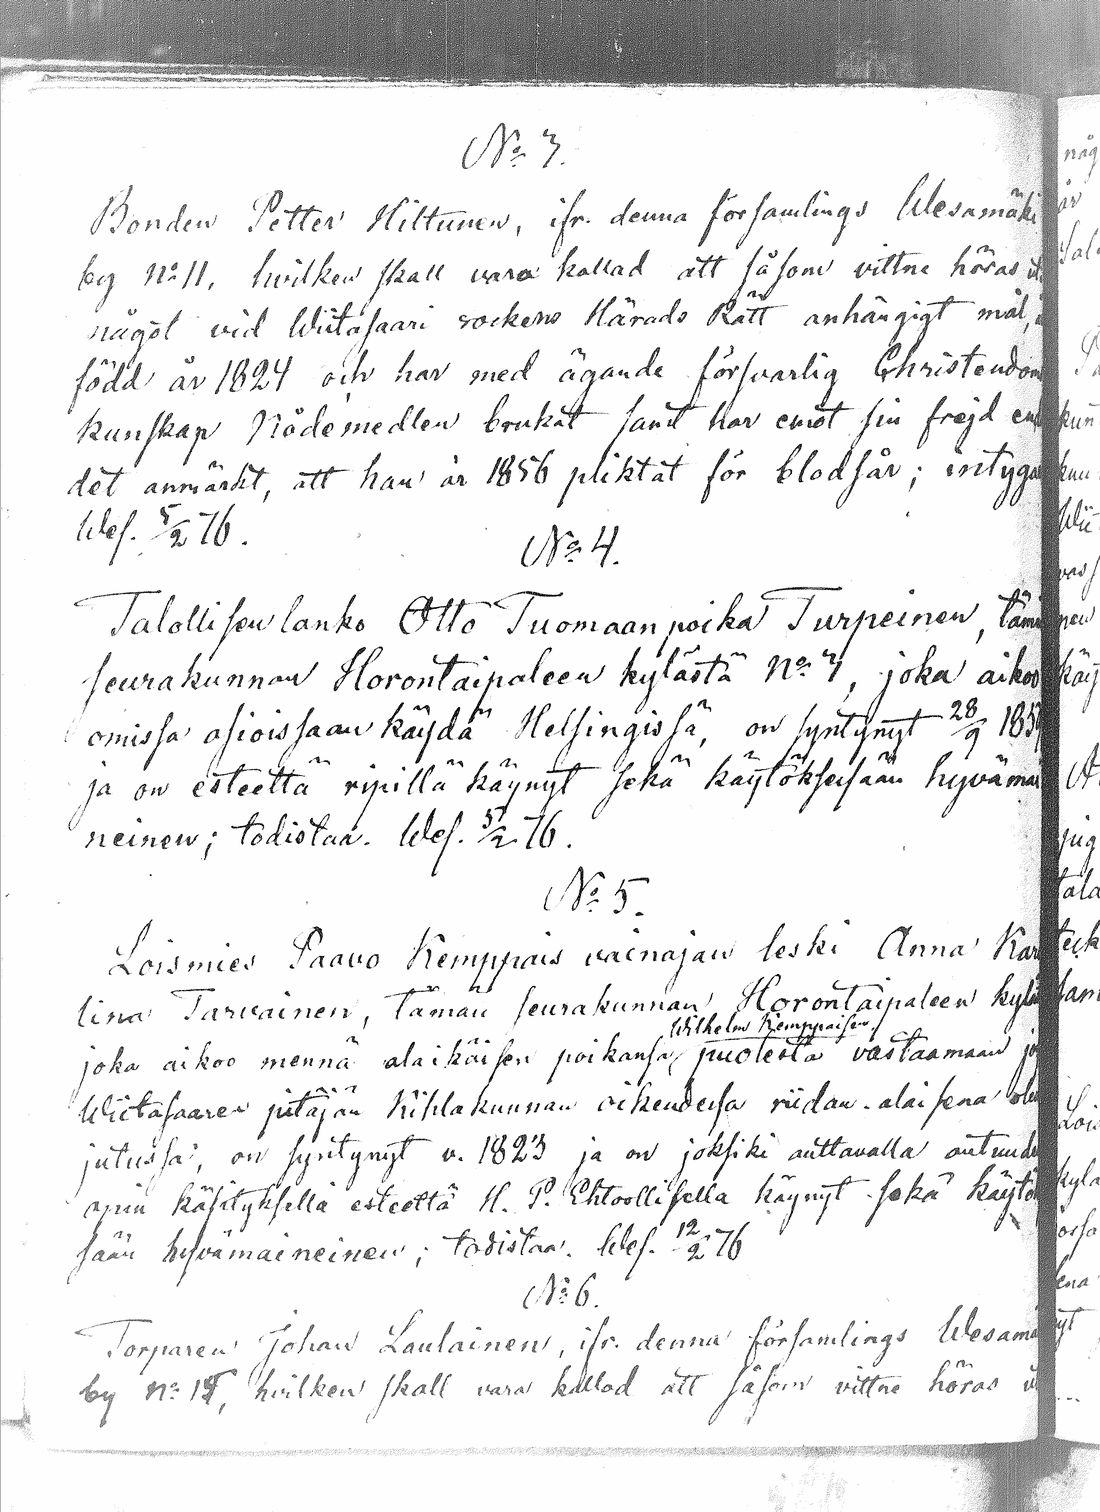 No 3.
Bonden Petter Hiltunen, ifr. denna församlings Wesamäki
by No 11, hvilken skall vara kallad att såsom vittne höras
något vid Wiitasaari sockens Härads Rätt anhängigt mål,
född år 1824 och har med ägande försvarlig Christendom
kunskap Nådemedlen brukat samt har emot sin frejd
det anmärkt, att han år 1856 pliktat för blodsår; intyga
Wes. 5/2 76.
No 4.
Talollisen lanko Otto Tuomaanpoika Turpeinen,
seurakunnan Horontaipaleen kylästä No 7, joka aikoo
omissa asioissaan käydä Helsingissä, on syntynyt 28/9
ja on esteettä ripillä käynyt sekä käytöksesään hyvämai
neinen; todistaa. Wes. 5/2 76.
No 5.
Loismies Paavo Kemppais vainajan leski Anna Kar
lina Tarvainen, tämän seurakunnan Horontaipaleen kylä
Wilhelm Kemppaisen
joka aikoo mennä alaikäisen poikansa puolesta vastaamaan
Wiitasaaren pitäjän Kihlakunnan oikeudessa riidan-alaisena
jutussa, on syntynyt v. 1823 ja on joksiki auttavalla
opin käsityksellä esteettä H. P. Ehtoollisella käynyt sekä käytö
sään hyvämaineinen; todistaa. Wes. 12/2 76
No 6.
Torparen Johan Laulainen, ifr. denna församlings Wesamä
by No hvilken skall vara kallad att såsom vittne höras